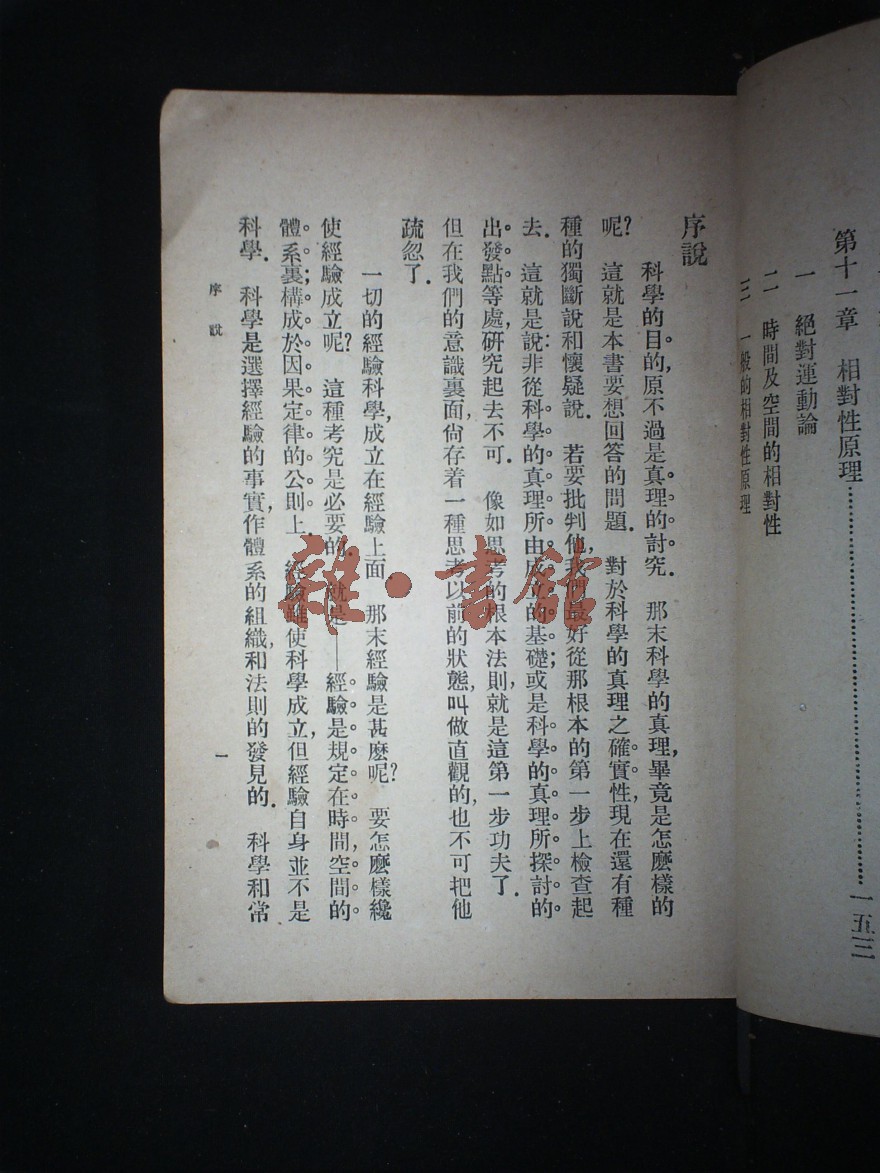 第十一章　相對性原理……………………一五三
一　絕對運動論
二　時間及空間的相對性
三　一般的相對性原理
序說
科學的目的,原不過是真理的討究．　那末科學的真理,畢竟是怎麼樣的
呢?　這就是本書要想回答的問題．　對於科學的真理之確實性,現在還有種
種的獨斷說和懷疑說．　若要批判他,我們最好從那根本的第一步上檢查起
去．　這就是說:非從科學的真理所由成立的基礎;或是科學的真理所探討的
出發點等處,研究起去不可．　像如思考的根本法則,就是這第一步功夫了．
但在我們的意識裏面,尙存着一種思考以前的狀態,叫做直觀的,也不可把他
疏忽了．
一切的經驗科學,成立在經驗上面．　那末經驗是甚麽呢?　要怎麽樣纔
使經驗成立呢?　這種考究是必要的．　就是——經驗是規定在時間,空間的
體系裏;構成於因果定律的公則上．　經驗雖使科學成立,但經驗自身並不是
科學．　科學是選擇經驗的事實,作體系的組織,和法則的發見的．　科學和常
序說
一
雜·書館